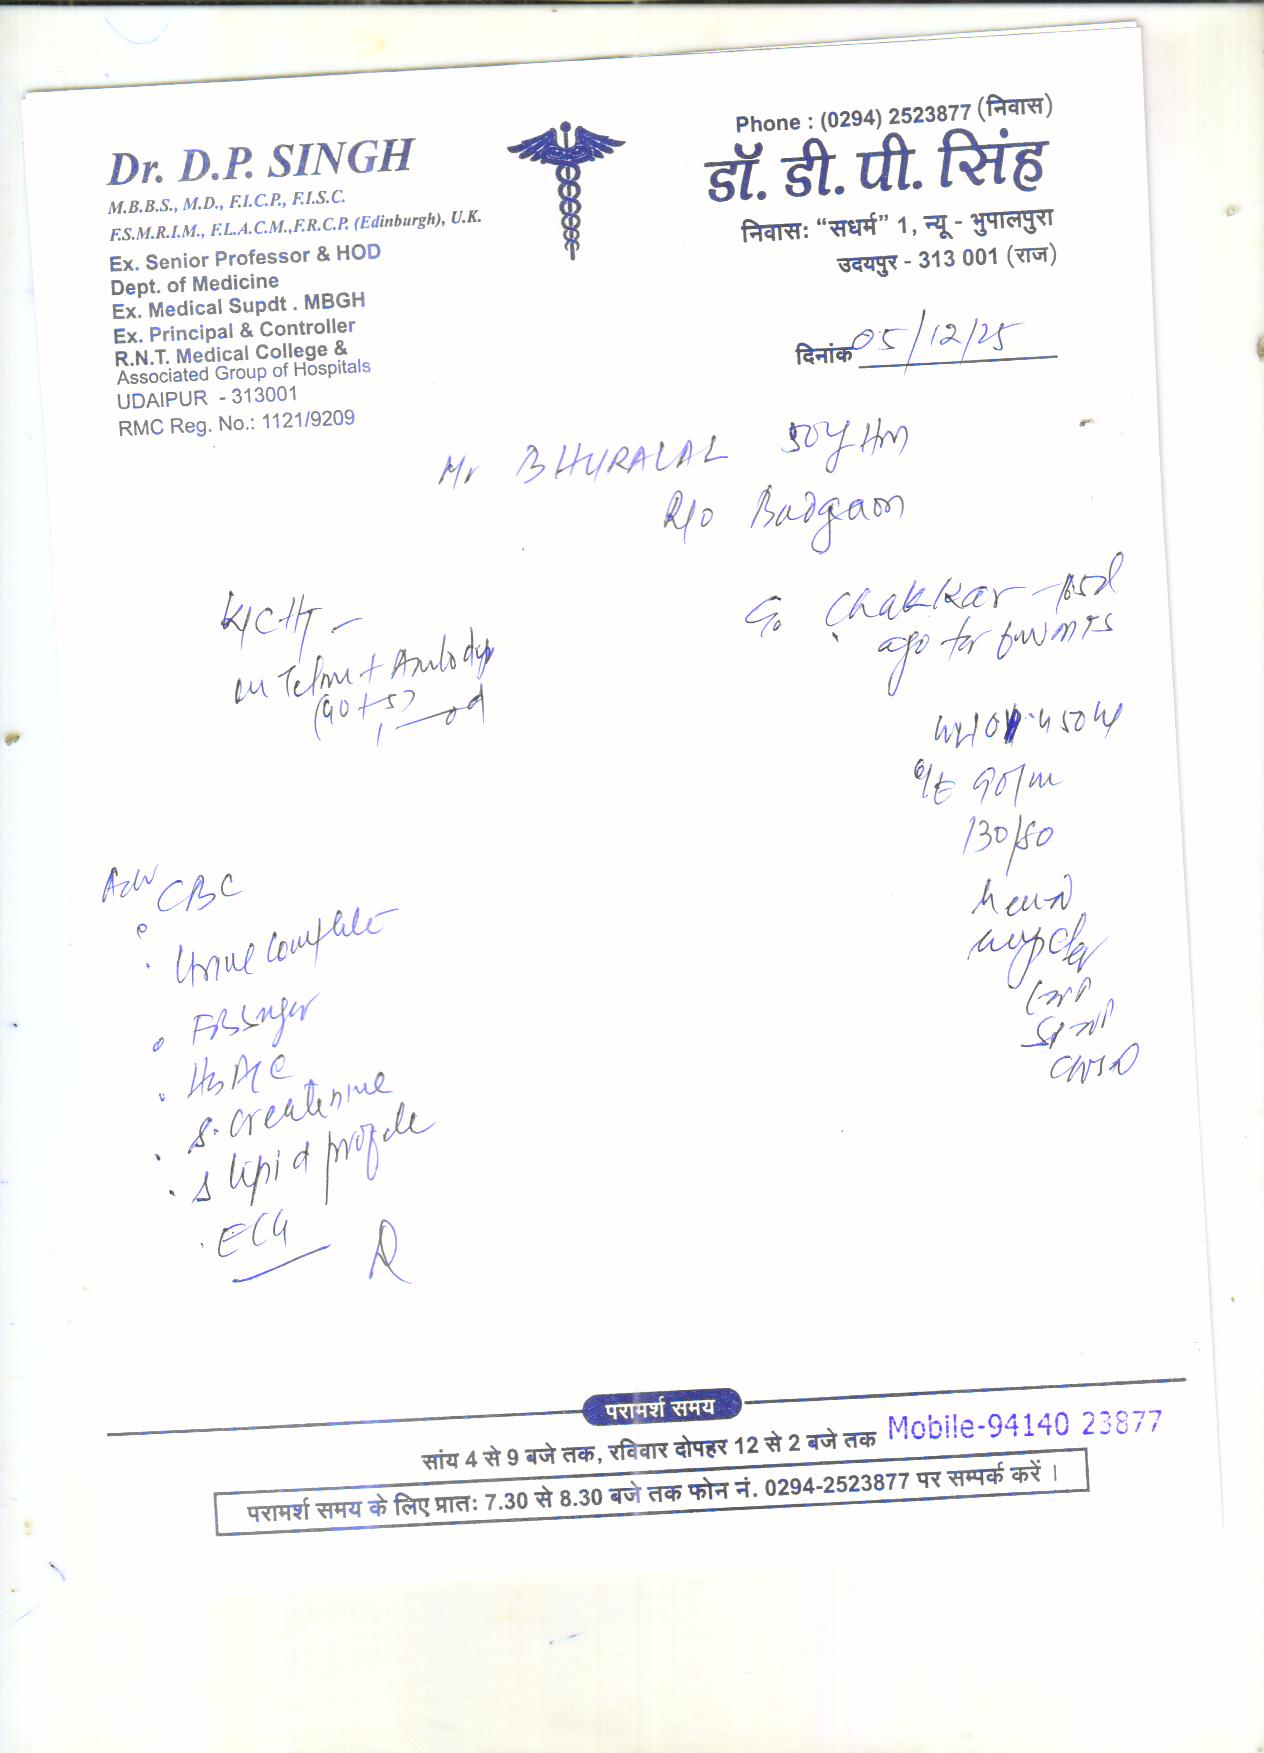 Phone : (0294) 2523877 (निवास)
Dr. D.P. SINGH
M.B.B.S., M.D., F.I.C.P., F.I.S.C.
F.S.M.R.I.M., F.L.A.C.M.,F.R.C.P. (Edinburgh), U.K.
Ex. Senior Professor & HOD
Dept. of Medicine
Ex. Medical Supdt . MBGH
Ex. Principal & Controller
R.N.T. Medical College &
Associated Group of Hospitals
UDAIPUR - 313001
RMC Reg. No.: 1121/9209
डॉ. डी. पी. सिंह
निवास: “सधर्म” 1, न्यू - भुपालपुरा
उदयपुर - 313 001 (राज)
दिनांक 05/12/25
Mr BHURALAL 50y
R/o Badgaon
K/C HT -
on Telm + Amlodip
C/o Chakkar
ago for few mts
O/E 90/m
130/80
Adv CBC
Urine Complete
FBSugar
HbA1C
S. Creatinine
S lipid profile
ECG
परामर्श समय
सांय 4 से 9 बजे तक, रविवार दोपहर 12 से 2 बजे तक Mobile-94140 23877
परामर्श समय के लिए प्रात: 7.30 से 8.30 बजे तक फोन नं. 0294-2523877 पर सम्पर्क करें ।